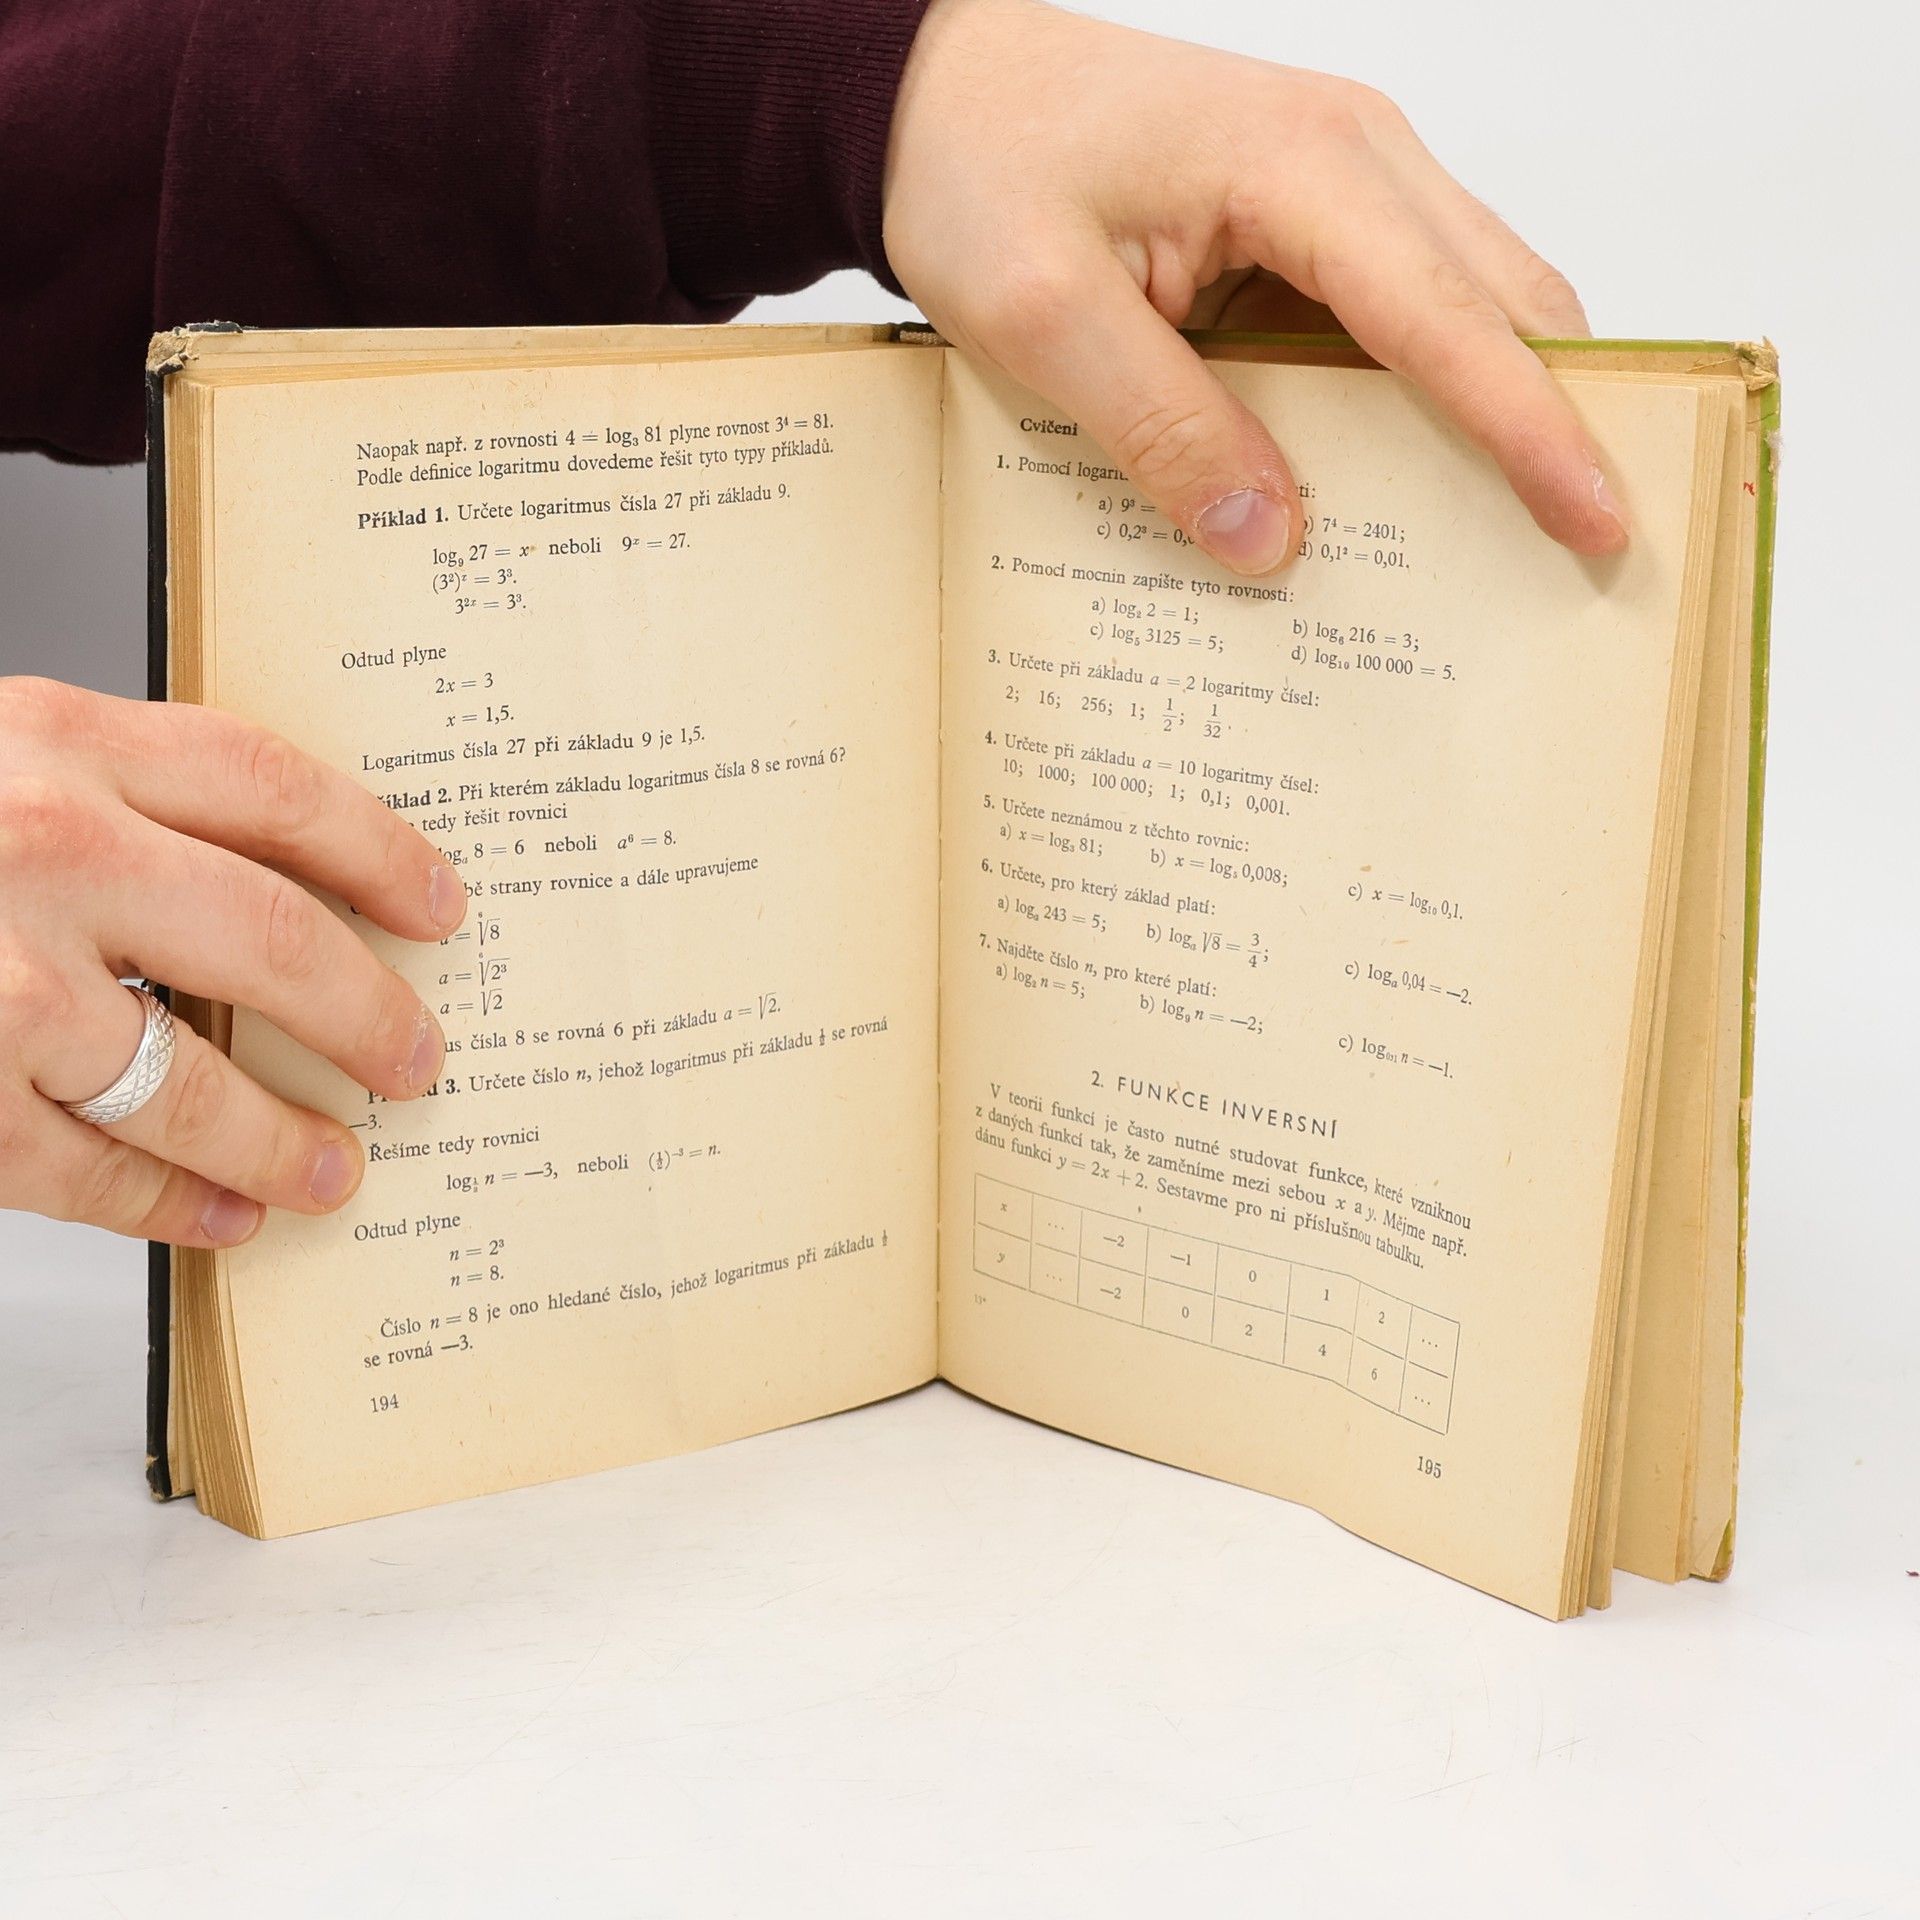 Naopak např. z rovnosti 4 = log₃ 81 plyne rovnost 3⁴ = 81.
Podle definice logaritmu dovedeme řešit tyto typy příkladů.
Příklad 1. Určete logaritmus čísla 27 při základu 9.
log₉ 27 = x neboli 9ˣ = 27.
(3²)ˣ = 3³.
3²ˣ = 3³.
Odtud plyne
2x = 3
x = 1,5.
Logaritmus čísla 27 při základu 9 je 1,5.
2. Při kterém základu logaritmus čísla 8 se rovná 6?
tedy řešit rovnici
logₐ 8 = 6 neboli a⁶ = 8.
strany rovnice a dále upravujeme
a = ⁶√8
a = ⁶√2³
a = √2
čísla 8 se rovná 6 při základu a = √2.
3. Určete číslo n, jehož logaritmus při základu ½ se rovná
—3.
Řešíme tedy rovnici
log½ n = —3, neboli (½)⁻³ = n.
Odtud plyne
n = 2³
n = 8.
Číslo n = 8 je ono hledané číslo, jehož logaritmus při základu ½
se rovná —3.
194
Cvičení
1. Pomocí
a) 9³ =
7⁴ = 2401;
c) 0,2³ =
d) 0,1² = 0,01.
2. Pomocí mocnin zapište tyto rovnosti:
a) log₂ 2 = 1; b) log₆ 216 = 3;
c) log₅ 3125 = 5; d) log₁₀ 100 000 = 5.
3. Určete při základu a = 2 logaritmy čísel:
2; 16; 256; 1; 1/2; 1/32.
4. Určete při základu a = 10 logaritmy čísel:
10; 1000; 100 000; 1; 0,1; 0,001.
5. Určete neznámou z těchto rovnic:
a) x = log₃ 81; b) x = log₅ 0,008; c) x = log₁₀ 0,1.
6. Určete, pro který základ platí:
a) logₐ 243 = 5; b) logₐ √8 = 3/4; c) logₐ 0,04 = —2.
7. Najděte číslo n, pro které platí:
a) log₂ n = 5; b) log₉ n = —2; c) log n = —1.
2. FUNKCE INVERSNÍ
V teorii funkcí je často nutné studovat funkce, které vzniknou
z daných funkcí tak, že zaměníme mezi sebou x a y. Mějme např.
dánu funkci y = 2x + 2. Sestavme pro ni příslušnou tabulku.
x ... —2 —1 0 1 2 ...
y ... —2 0 2 4 6 ...
13*
195